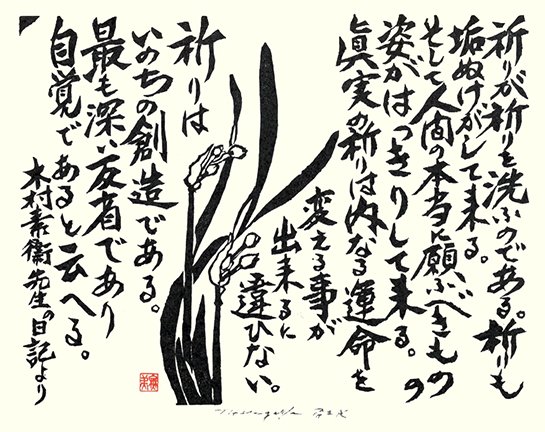 祈りが祈りを洗ふのである。祈りも
垢ぬけがして来る。
そして人間の本当に願ふべきものの
姿がはっきりして来る。
眞実の祈りは内なる運命を
変える事が
出来るに
違ひない。
祈りは
いのちの創造である。
最も深い反省であり
自覚であると云へる。
木村素衞先生の日記より